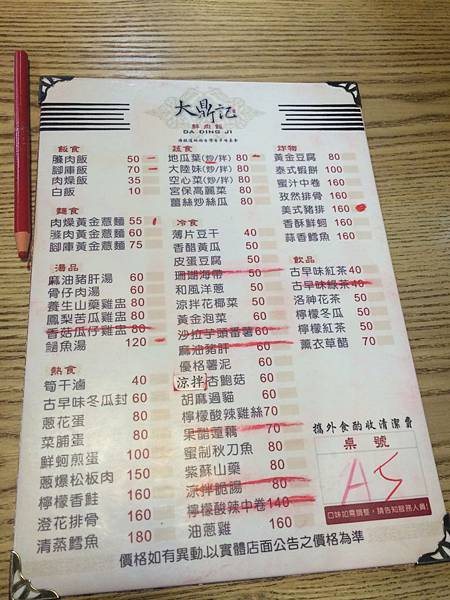 大鼎記
DA DING JI
飯食
爌肉飯 50
腳庫飯 70
肉燥飯 35
白飯 10
麵食
肉燥黃金意麵 55
爌肉黃金意麵 60
腳庫黃金意麵 75
湯品
麻油豬肝湯 60
骨仔肉湯 60
養生山藥雞盅 80
鳳梨苦瓜雞盅 80
香菇瓜仔雞盅 80
鱈魚湯 120
熱食
筍干滷 40
古早味冬瓜封 60
蔥花蛋 80
菜脯蛋 80
鮮蚵煎蛋 100
蔥爆松板肉 150
檸檬香鮭 160
澄花排骨 160
清蒸鱈魚 180
蔬食
地瓜葉(炒/拌) 80
大陸妹(炒/拌) 80
空心菜(炒/拌) 80
宮保高麗菜 80
薑絲炒絲瓜 80
冷食
薄片豆干 40
香醋黃瓜 50
皮蛋豆腐 50
珊瑚海帶 50
和風洋蔥 50
涼拌花椰菜 50
黃金泡菜 60
沙拉芋頭番薯 80
麻油豬肝 60
優格薯泥 60
涼拌杏鮑菇 60
胡麻過貓 60
檸檬酸辣雞絲 70
果醋蓮藕 70
蜜制秋刀魚 80
紫蘇山藥 80
涼拌脆腸 80
檸檬酸辣中卷 140
油蔥雞 160
炸物
黃金豆腐 80
泰式蝦餅 100
蜜汁中卷 160
孜然排骨 160
美式豬排 160
香酥鮮蚵 160
蒜香鱈魚 160
飲品
古早味紅茶 40
古早味綠茶 40
洛神花茶 50
檸檬冬瓜 50
檸檬紅茶 50
薰衣草醋 70
攜外食酌收清潔費
桌號
A5
口味如需調整,請告知服務人員!
價格如有異動,以實體店面公告之價格為準